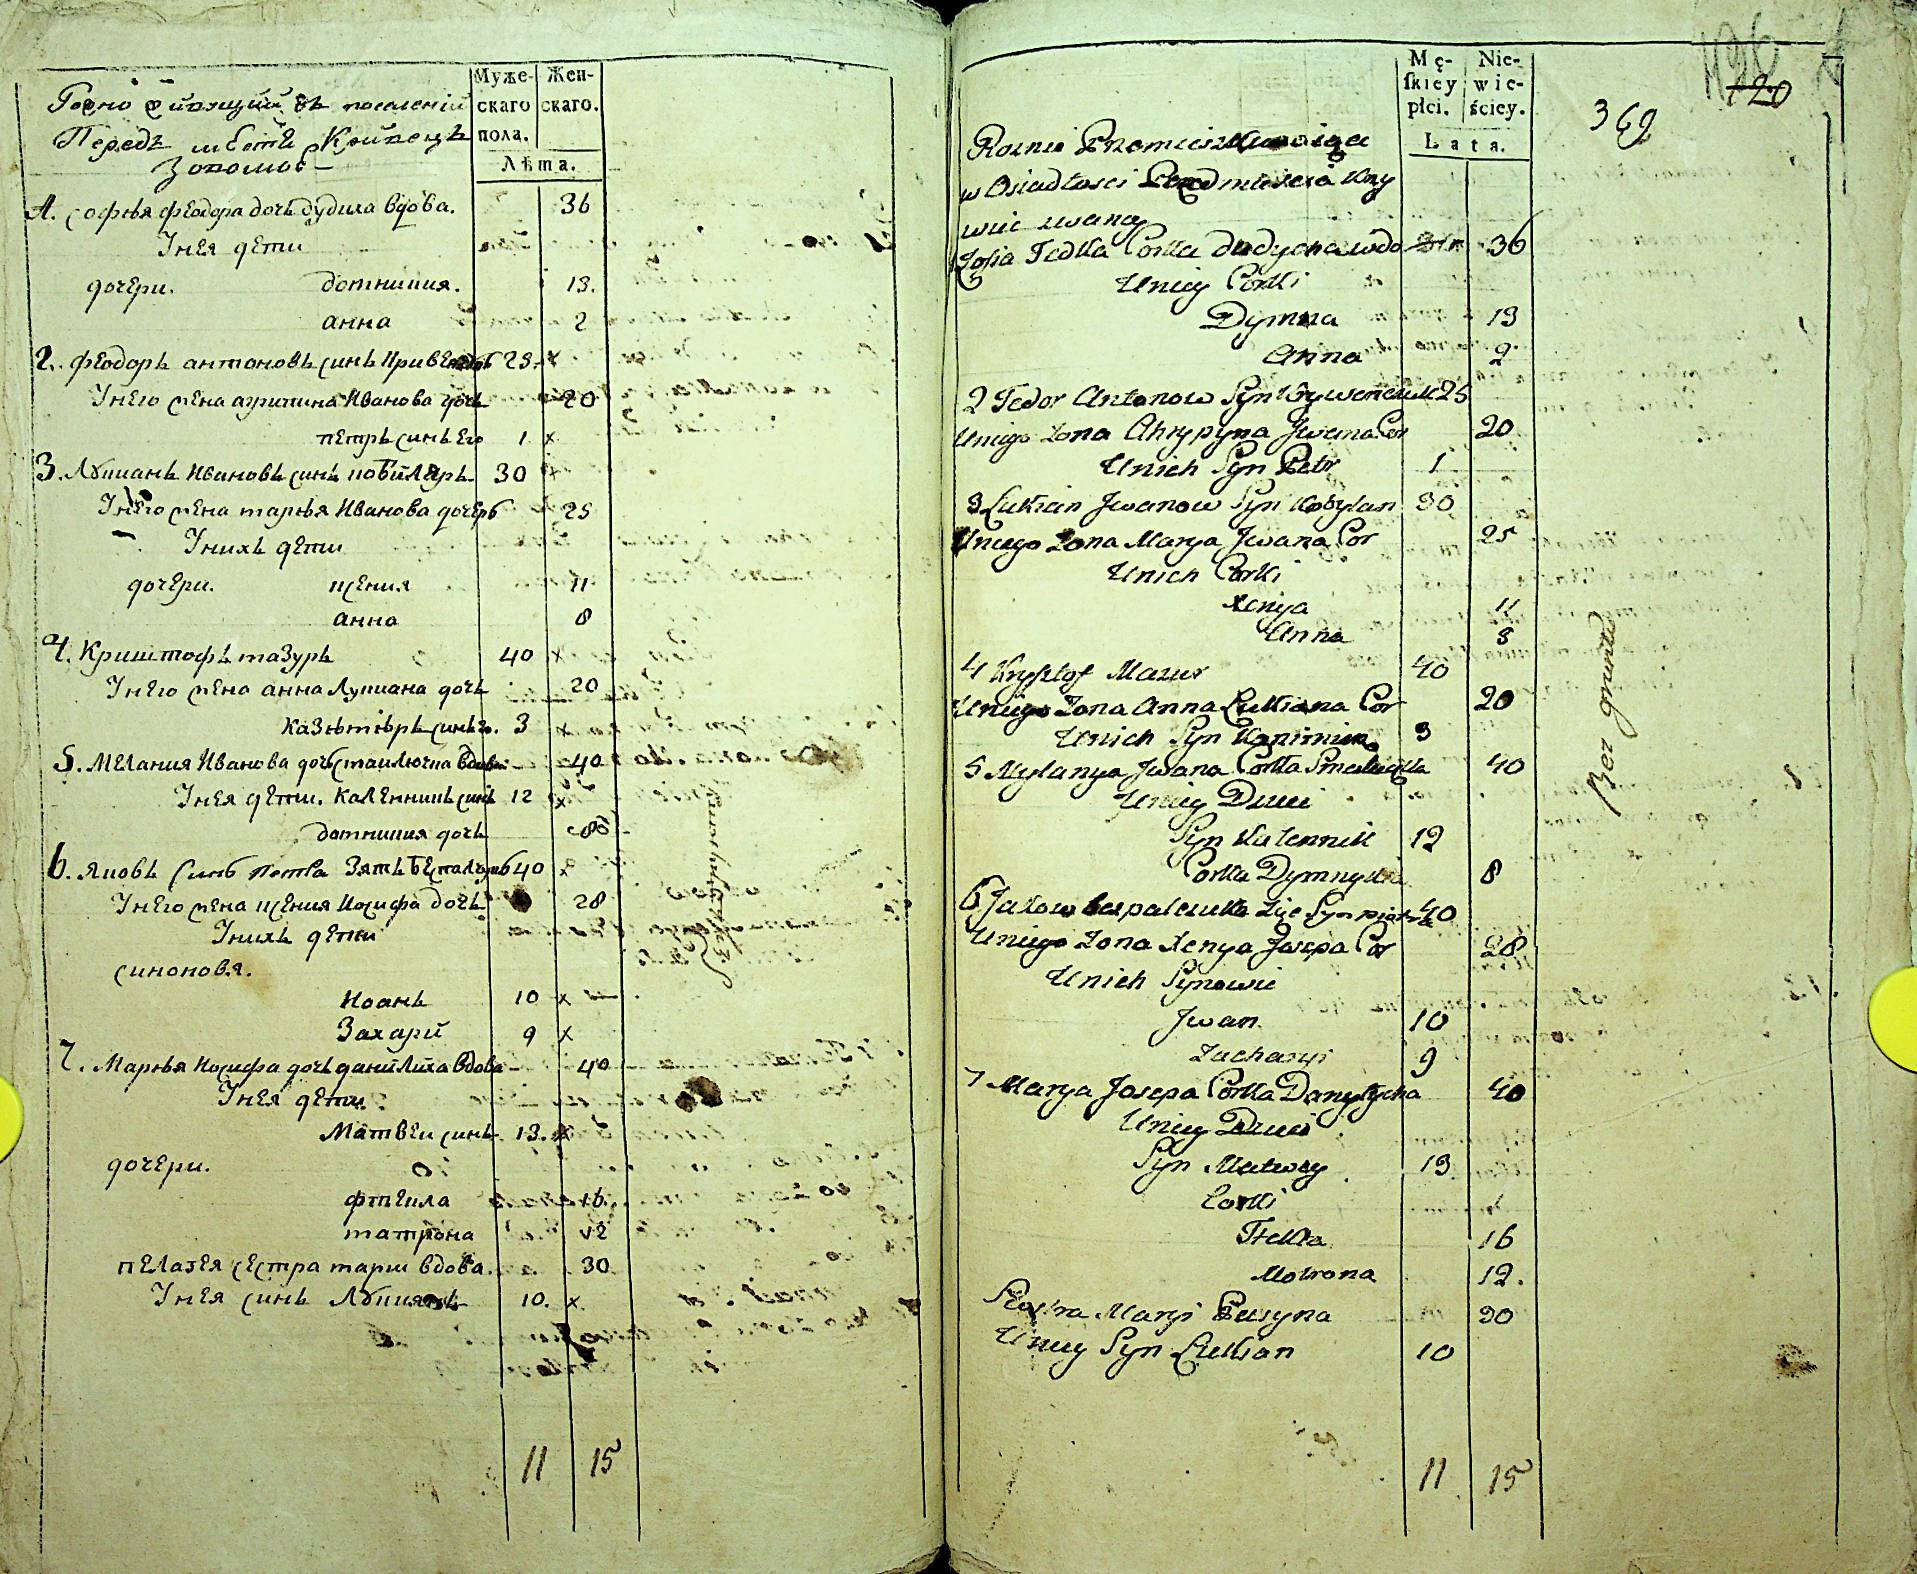 Муже-
скаго
пола.
Жен-
скаго.
Лѣта.
Передъ
1. софья феодора дочь дудиха вдова. 36
Унея дети
дочери. домникия. 13.
анна 2
2. феодоръ антоновъ синъ 25
Унего жена агрипина Иванова дочь 20
петръ синъ его 1 х
3. Лукианъ Ивановъ синъ кобиляръ 30 х
Унего жена марья Иванова дочерь 25
Унихъ дети
дочери. ксения 11
анна 8
4. Криштофъ мазуръ 40 х
Унего жена анна Лукиана дочь 20
синъ 3 х
5. Мелания Иванова дочь вдова 40
Унея дети. каленникъ синъ 12 х
домникия дочь 8
6. яковъ синъ петра зять 40 х
Унего жена ксения Иосифа дочь 28
Унихъ дети
синоновя.
Иоанъ 10 х
Захарий 9 х
7. Марья Иосифа дочь данилиха вдова 40
Унея дети
Матвей синъ 13. х
дочери.
16.
матрона 12
пелагея сестра марии вдова. 30
Унея синъ 10. х
11 15
Mę-
skiey
płci.
Nie-
wie-
ściey.
Lata.
120
369
Roźnie
w Osiadłosci
1 Zofia Fedka Corka dudycha wdo 36
Uniey Corki
Dymna 13
Anna 2
2 Fedor Antonow Syn Krywenczuk 25
Uniego Zona Ahrypyna Jwana Cor 20
Unich Syn Petr 1
3 Lukian Jwanow Syn Kobylan 30
Uniego Zona Marya Jwana Cor 25
Unich Corki
Xenya 11
Anna 8
4 Krysztof Mazur 40
Uniego Zona Anna Lukiana Cor 20
Unich Syn Kazimier 3
5 Mylanya Jwana Corka 40
Uniey Dzieci
Syn Kalennik 12
Corka 8
6 Jakow 40
Uniego Zona Xenya Josepa Cor 28
Unich Synowie
Jwan 10
Zacharyi 9
7 Marya Josepa Corka Danylycha 40
Uniey Dzieci
Syn Matwey 13
Corki
Tekla 16
Motrona 12.
Siostra Maryi 30
Uniey Syn Lukian 10
11 15
Bez gruntu